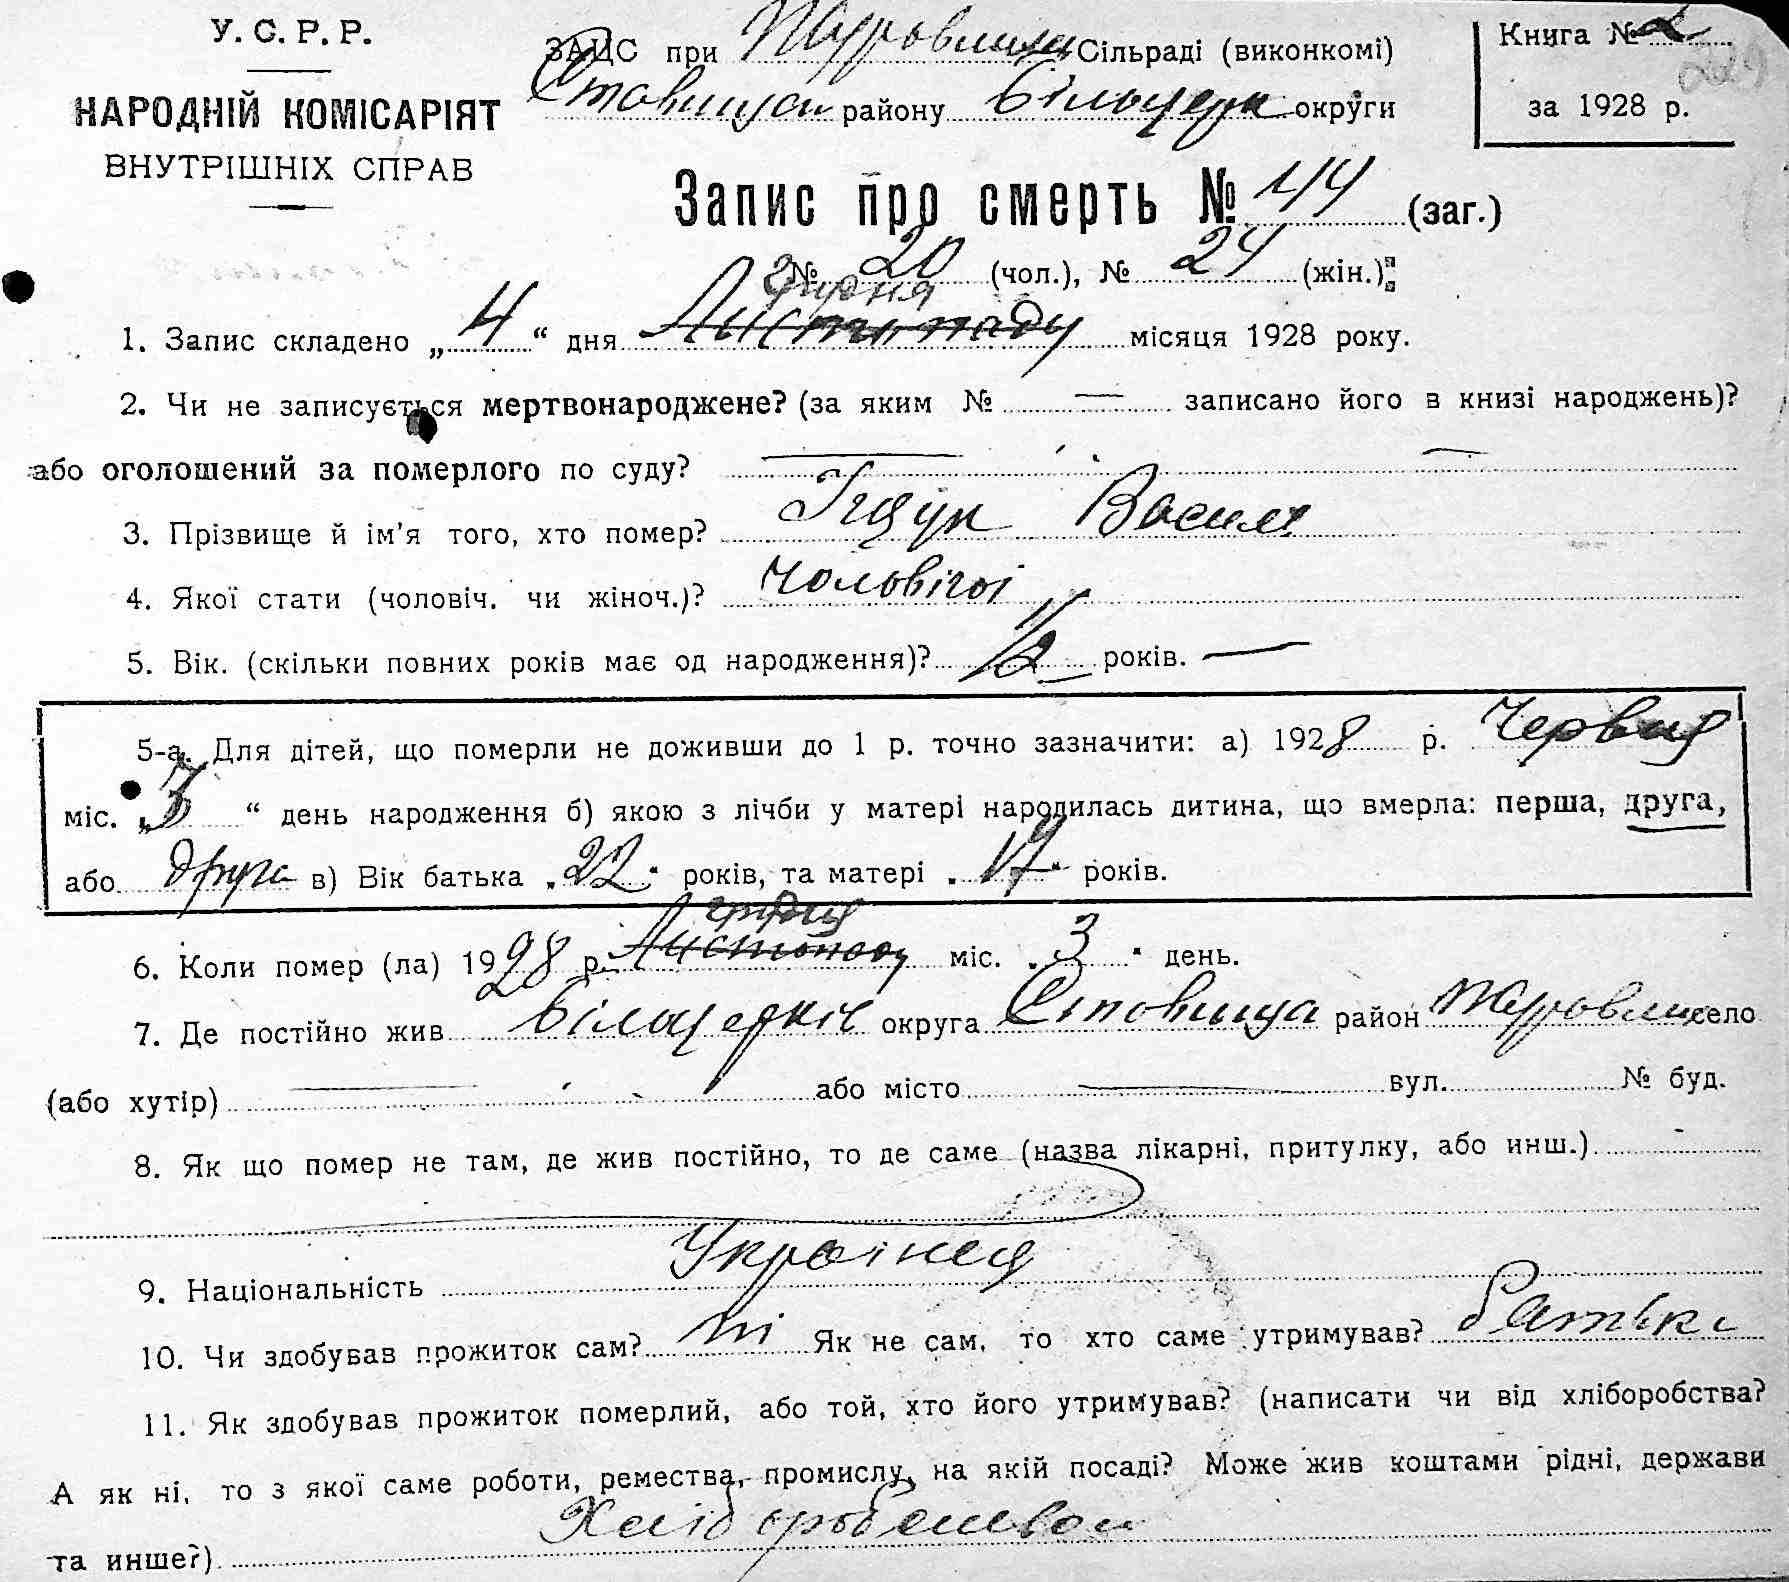 У. С. Р. Р.
НАРОДНІЙ КОМІСАРІЯТ
ВНУТРІШНІХ СПРАВ
ЗАЦС при Сільраді (виконкомі)
Ставища району Білоцерк округи
Книга №
за 1928 р.
Запис про смерть № 44 (заг.)
№ 20 (чол.), № 24 (жін.)
грудня
1. Запис складено „ 4 “ дня Листопаду місяця 1928 року.
2. Чи не записується мертвонароджене? (за яким № — записано його в книзі народжень)?
або оголошений за померлого по суду? —
3. Прізвище й ім'я того, хто помер? Іщук Василь
4. Якої стати (чоловіч. чи жіноч.)? Чоловічої
5. Вік. (скільки повних років має од народження)? 1/2 років. —
5-а. Для дітей, що померли не доживши до 1 р. точно зазначити: а) 1928 р. Червня
міс. „ 3 “ день народження б) якою з лічби у матері народилась дитина, що вмерла: перша, друга,
або друга в) Вік батька „ 22 “ років, та матері „ 19 “ років.
грудня
6. Коли помер (ла) 1928 р. Листопаду міс. „ 3 “ день.
7. Де постійно жив округа Ставища район село
(або хутір) — або місто — вул. № буд.
8. Як що помер не там, де жив постійно, то де саме (назва лікарні, притулку, або инш.)
9. Національність Українец
10. Чи здобував прожиток сам? ні Як не сам, то хто саме утримував? батьки
11. Як здобував прожиток померлий, або той, хто його утримував? (написати чи від хліборобства?
А як ні, то з якої саме роботи, ремества, промислу, на якій посаді? Може жив коштами рідні, держави
та инше?) Хліборобством